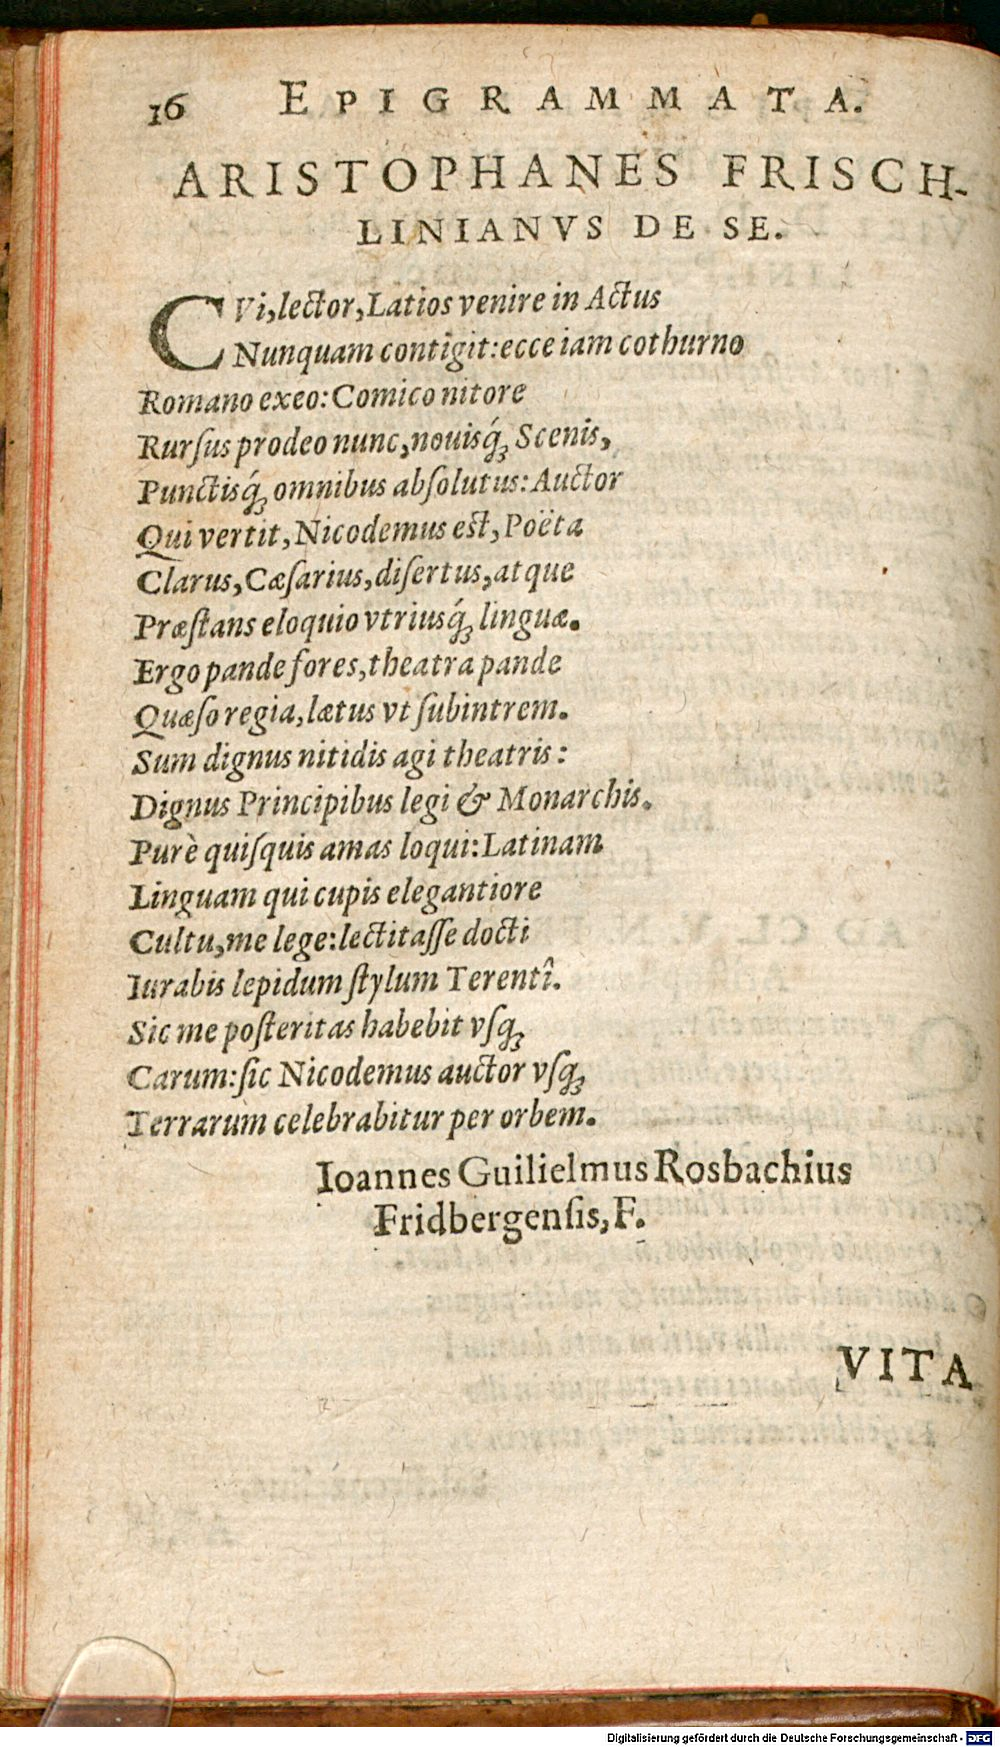 16 EPIGRAMMATA.
ARISTOPHANES FRISCH-
LINIANVS DE SE.
CVi, lector, Latios venire in Actus
Nunquam contigit: ecce iam cothurno
Romano exeo: Comico nitore
Rurſus prodeo nunc, nouisq́ꝫ Scenis,
Punctisq́ꝫ omnibus abſolutus: Auctor
Qui vertit, Nicodemus est, Poëta
Clarus, Cæſarius, diſertus, atque
Præſtans eloquio vtriusq́ꝫ linguæ.
Ergo pande fores, theatra pande
Quæſo regia, lætus vt ſubintrem.
Sum dignus nitidis agi theatris:
Dignus Principibus legi & Monarchis.
Purè quiſquis amas loqui: Latinam
Linguam qui cupis elegantiore
Cultu, me lege: lectitaſſe docti
Iurabis lepidum ſtylum Terentî.
Sic me poſteritas habebit vſqꝫ
Carum: ſic Nicodemus auctor vſqꝫ
Terrarum celebrabitur per orbem.
Ioannes Guilielmus Rosbachius
Fridbergenſis, F.
VITA
Digitalisierung gefördert durch die Deutsche Forschungsgemeinschaft - DFG